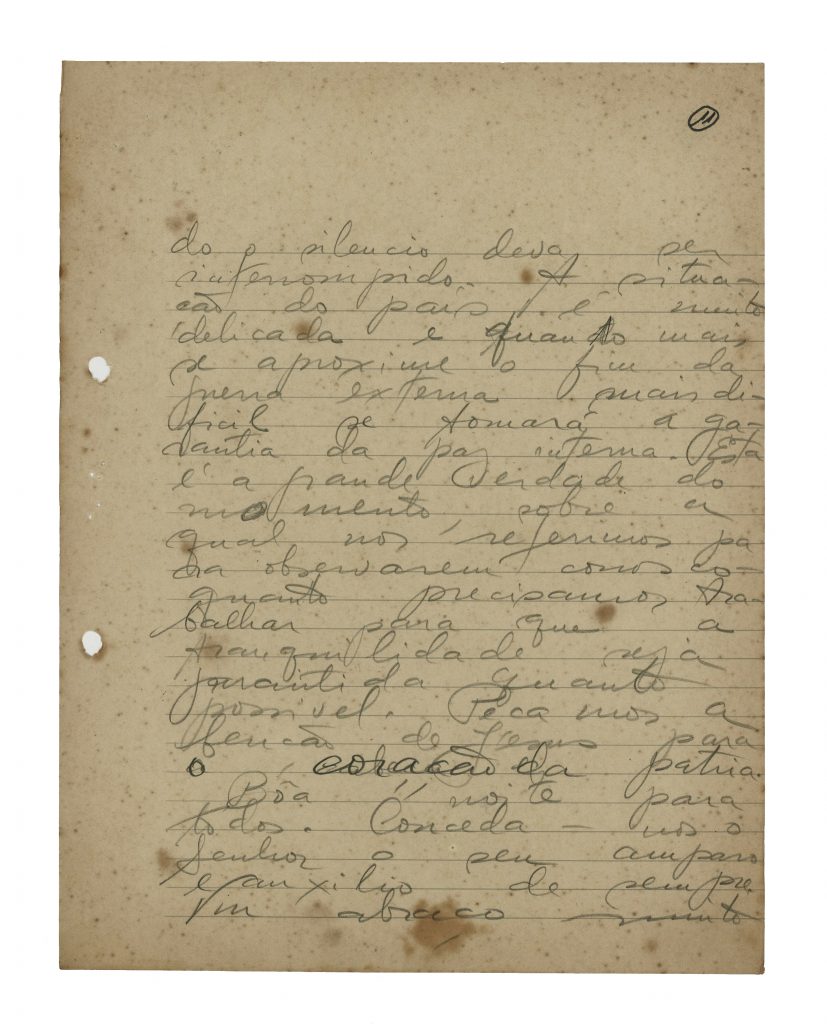 11
do o silencio deva ser
interrompido. A situa-
cão do país é muito
delicada e quanto mais
se aproxime o fim da
guerra externa mais di-
ficil se tornará a ga-
rantia da paz interna. Esta
é a grande verdade do
momento, sobre a
qual nos referimos pa
ra observarem conosco
quanto precisamos tra-
balhar para que a
tranquilidade seja
garantida quanto
possivel. Peçamos a
bencão de Jesus para
o coracão da patria.
Bôa noite para
todos. Conceda-nos o
Senhor o seu amparo
e auxilio de sempre.
Um abraco muito